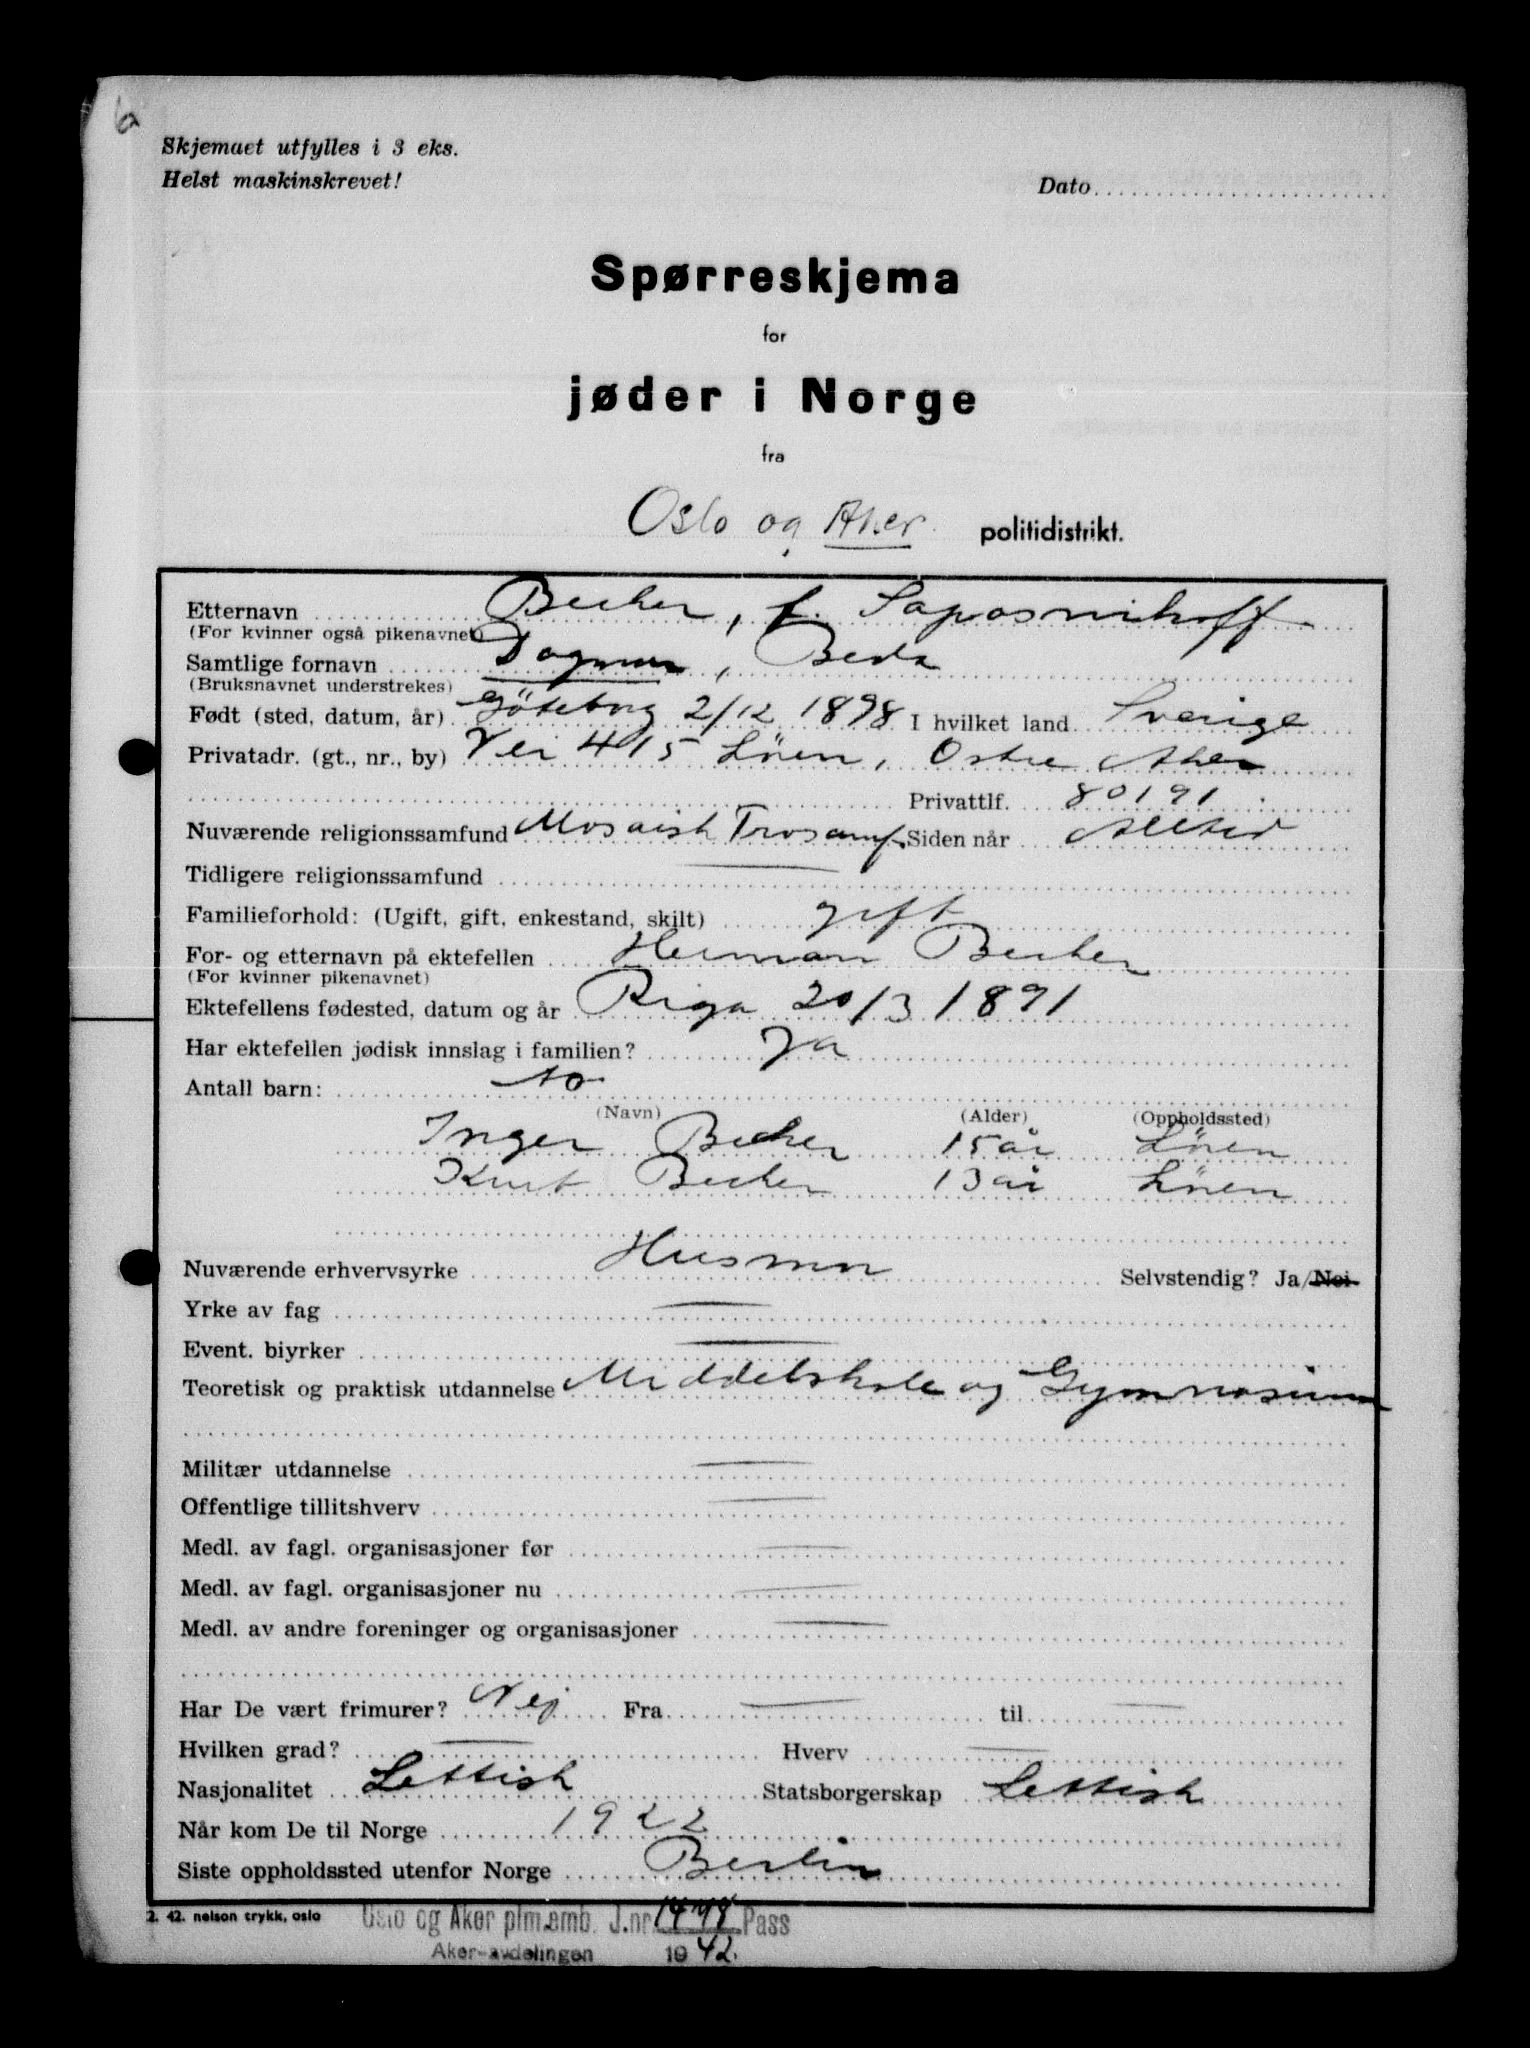 Skjemaet utfylles i 3 eks.
Helst maskinskrevet!
Dato
Spørreskjema
for
jøder i Norge
fra
Oslo og Aker politidistrikt.
Etternavn Becher, f. Saposnikoff
(For kvinner også pikenavnet)
Samtlige fornavn Dagmar, Beda
(Bruksnavnet understrekes)
Født (sted, datum, år) Göteborg 2/12 1898 I hvilket land Sverige
Privatadr. (gt., nr., by) Vei 415 Lören, Ostre Aker
Privattlf. 80191
Nuværende religionssamfund Mosaisk Trosamf. Siden når Alltid
Tidligere religionssamfund
Familieforhold: (Ugift, gift, enkestand, skilt) gift
For- og etternavn på ektefellen Herman Becher
(For kvinner pikenavnet)
Ektefellens fødested, datum og år Riga 20/3 1891
Har ektefellen jødisk innslag i familien? Ja
Antall barn: to
(Navn) (Alder) (Oppholdssted)
Inger Becher 15 år Lören
Kurt Becher 13 år Lören
Nuværende erhvervsyrke Husmor Selvstendig? Ja/Nei
Yrke av fag
Event. biyrker
Teoretisk og praktisk utdannelse Middelskole og Gymnasium
Militær utdannelse
Offentlige tillitshverv
Medl. av fagl. organisasjoner før
Medl. av fagl. organisasjoner nu
Medl. av andre foreninger og organisasjoner
Har De vært frimurer? Nej Fra til
Hvilken grad? Hverv
Nasjonalitet Lettisk Statsborgerskap Lettisk
Når kom De til Norge 1922
Siste oppholdssted utenfor Norge Berlin
2. 42. nelson trykk, oslo
Oslo og Aker plm.emb. J.nr. 1448 Pass
Aker-avdelingen 1942.